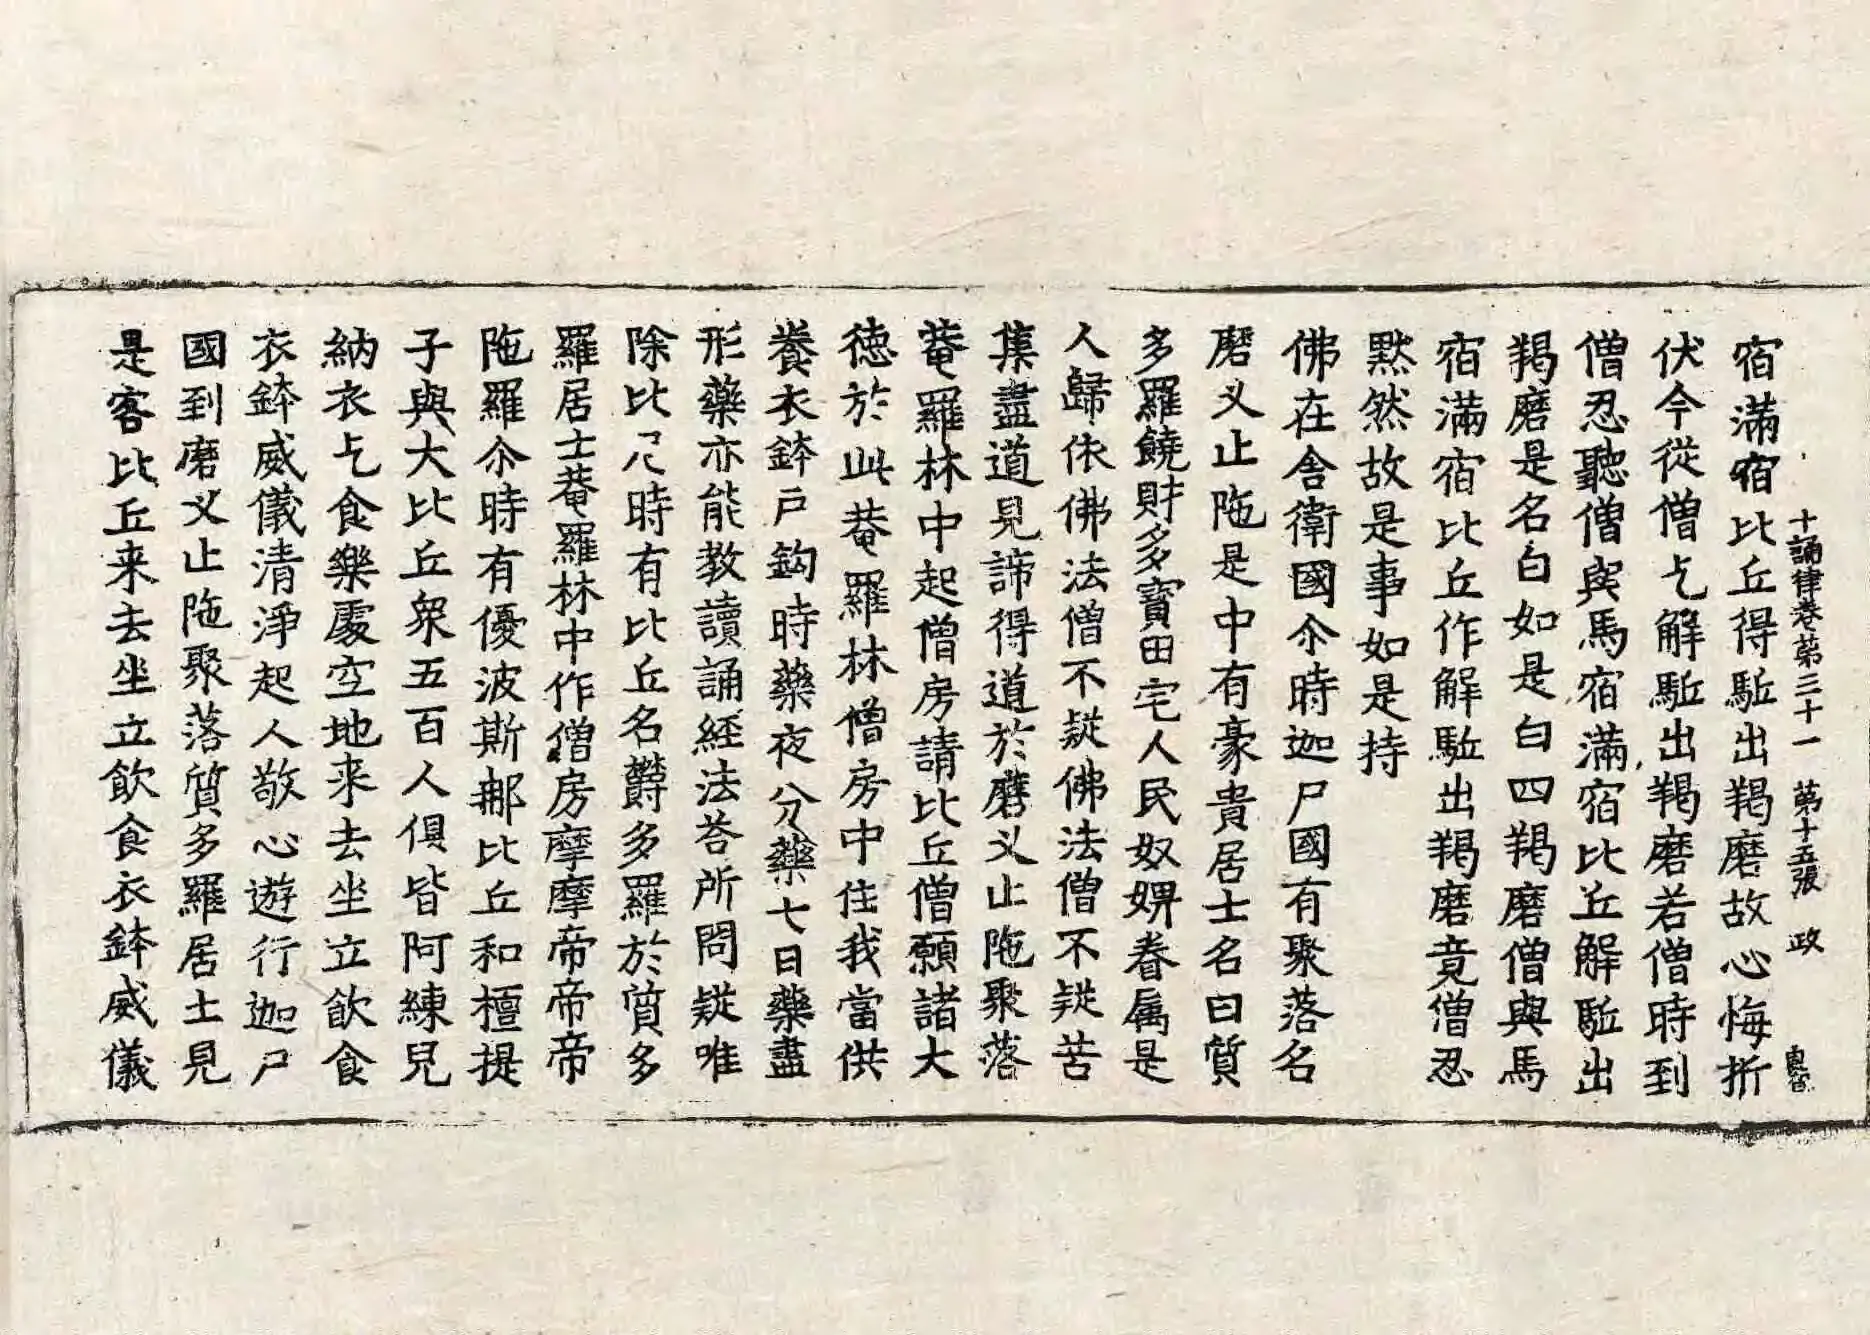 十誦律卷第三十一 第十五張 政
宿滿宿比丘得駈出羯磨故心悔折
伏今從僧乞解駈出羯磨若僧時到
僧忍聽僧與馬宿滿宿比丘解駈出
羯磨是名白如是白四羯磨僧與馬
宿滿宿比丘作解駈出羯磨竟僧忍
黙然故是事如是持
佛在舎衛國尒時迦尸國有聚落名
磨叉止陁是中有豪貴居士名曰質
多羅饒財多寶田宅人民奴婢眷属是
人歸依佛法僧不疑佛法僧不疑苦
集盡道見諦得道於磨叉止陁聚落
菴羅林中起僧房請比丘僧願諸大
徳於此菴羅林僧房中住我當供
養衣鉢戸鈎時藥夜分藥七日藥盡
形藥亦能教讀誦經法荅所問疑唯
除比尼時有比丘名欝多羅於質多
羅居士菴羅林中作僧房摩摩帝帝帝
陁羅尒時有優波斯那比丘和檀提
子與大比丘衆五百人俱皆阿練兒
納衣乞食樂露空地来去坐立飲食
衣鉢威儀清淨起人敬心遊行迦尸
國到磨叉止陁聚落質多羅居士見
是客比丘来去坐立飲食衣鉢威儀